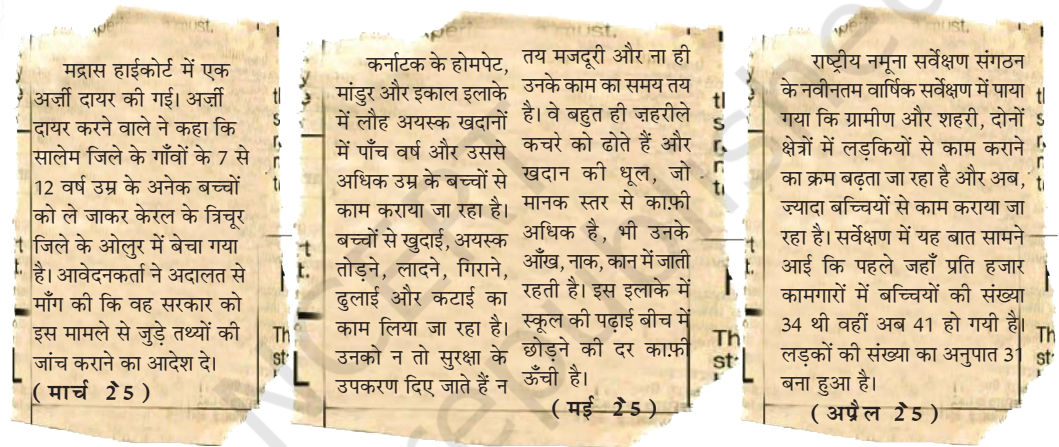 मद्रास हाईकोर्ट में एक
अर्ज़ी दायर की गई। अर्ज़ी
दायर करने वाले ने कहा कि
सालेम जिले के गाँवों के 7 से
12 वर्ष उम्र के अनेक बच्चों
को ले जाकर केरल के त्रिचूर
जिले के ओलुर में बेचा गया
है। आवेदनकर्ता ने अदालत से
माँग की कि वह सरकार को
इस मामले से जुड़े तथ्यों की
जांच कराने का आदेश दे।
( मार्च 25 )
कर्नाटक के होमपेट,
मांडुर और इकाल इलाके
में लौह अयस्क खदानों
में पाँच वर्ष और उससे
अधिक उम्र के बच्चों से
काम कराया जा रहा है।
बच्चों से खुदाई, अयस्क
तोड़ने, लादने, गिराने,
ढुलाई और कटाई का
काम लिया जा रहा है।
उनको न तो सुरक्षा के
उपकरण दिए जाते हैं न
तय मजदूरी और ना ही
उनके काम का समय तय
है। वे बहुत ही ज़हरीले
कचरे को ढोते हैं और
खदान की धूल, जो
मानक स्तर से काफ़ी
अधिक है, भी उनके
आँख, नाक, कान में जाती
रहती है। इस इलाके में
स्कूल की पढ़ाई बीच में
छोड़ने की दर काफ़ी
ऊँची है।
( मई 25 )
राष्ट्रीय नमूना सर्वेक्षण संगठन
के नवीनतम वार्षिक सर्वेक्षण में पाया
गया कि ग्रामीण और शहरी, दोनों
क्षेत्रों में लड़कियों से काम कराने
का क्रम बढ़ता जा रहा है और अब,
ज़्यादा बच्चियों से काम कराया जा
रहा है। सर्वेक्षण में यह बात सामने
आई कि पहले जहाँ प्रति हजार
कामगारों में बच्चियों की संख्या
34 थी वहीं अब 41 हो गयी है।
लड़कों की संख्या का अनुपात 31
बना हुआ है।
( अप्रैल 25 )